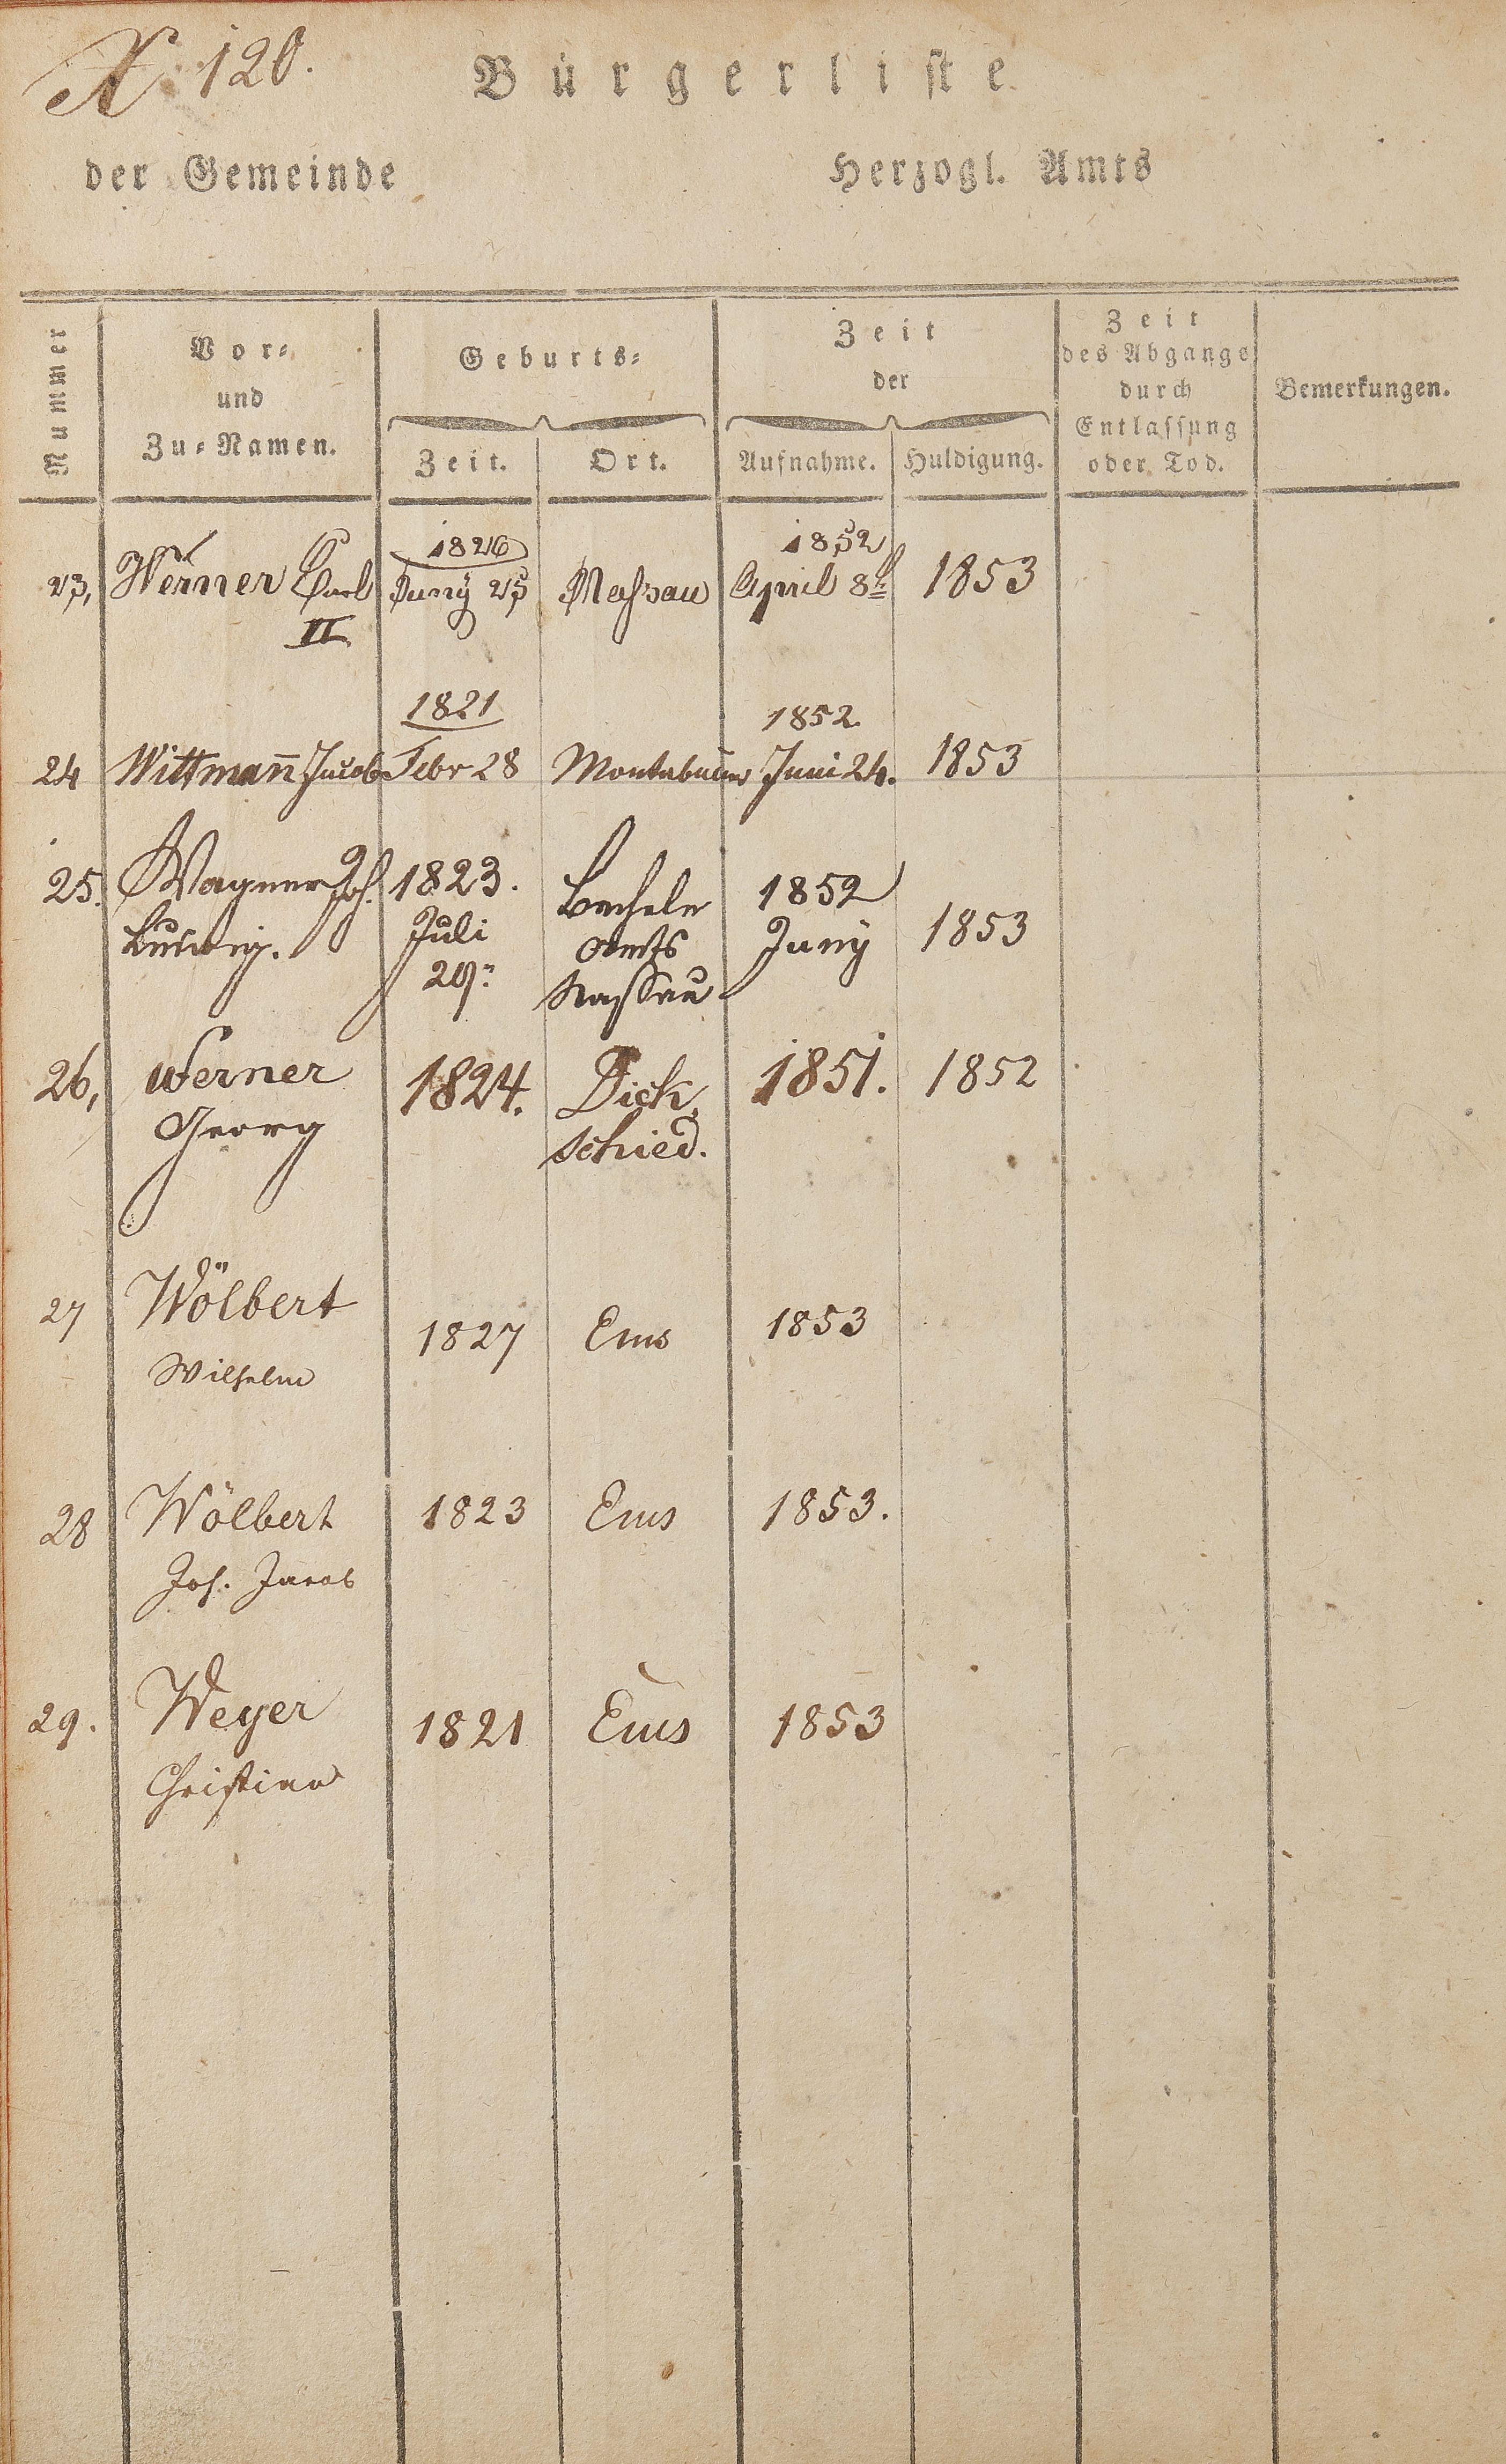 N. 120.
Bürgerliste
der Gemeinde Herzogl. Amts
Nummer
Vor-
und
Zu-Namen.
Geburts-
Zeit. Ort.
Zeit
der
Aufnahme. Huldigung.
Zeit
des Abgangs
durch
Entlassung
oder Tod.
Bemerkungen.
1826 1852
23, Werner Carl Juny 25 Nassau April 8t 1853
II
1821 1852.
24 Wittmann̄ Jacob Febr 28 Montabaur Juni 24. 1853
25. Wagner Joh. 1823. 1852
Ludwig. Juli Amts Juny 1853
29. Nassau
26, Werner 1824. Dick, 1851. 1852
Georg schied.
27 Wölbert 1827 Ems 1853
Wilhelm
28 Wölbert 1823 Ems 1853.
Joh. Jacob
29. Weyer 1821 Ems 1853